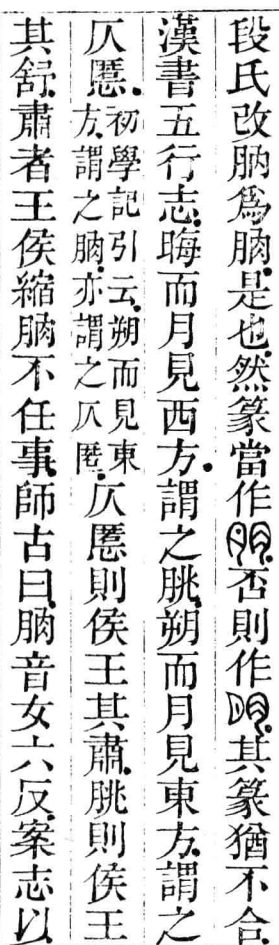 段氏改朒爲肭是也然篆當作否則作其篆猶不合
漢書五行志晦而月見西方謂之朓朔而月見東方謂之
仄慝初學記引云朔而見東方謂之朒亦謂之仄慝仄慝則侯王其肅朓則侯王
其舒肅者王侯縮朒不任事師古曰朒音女六反案志以